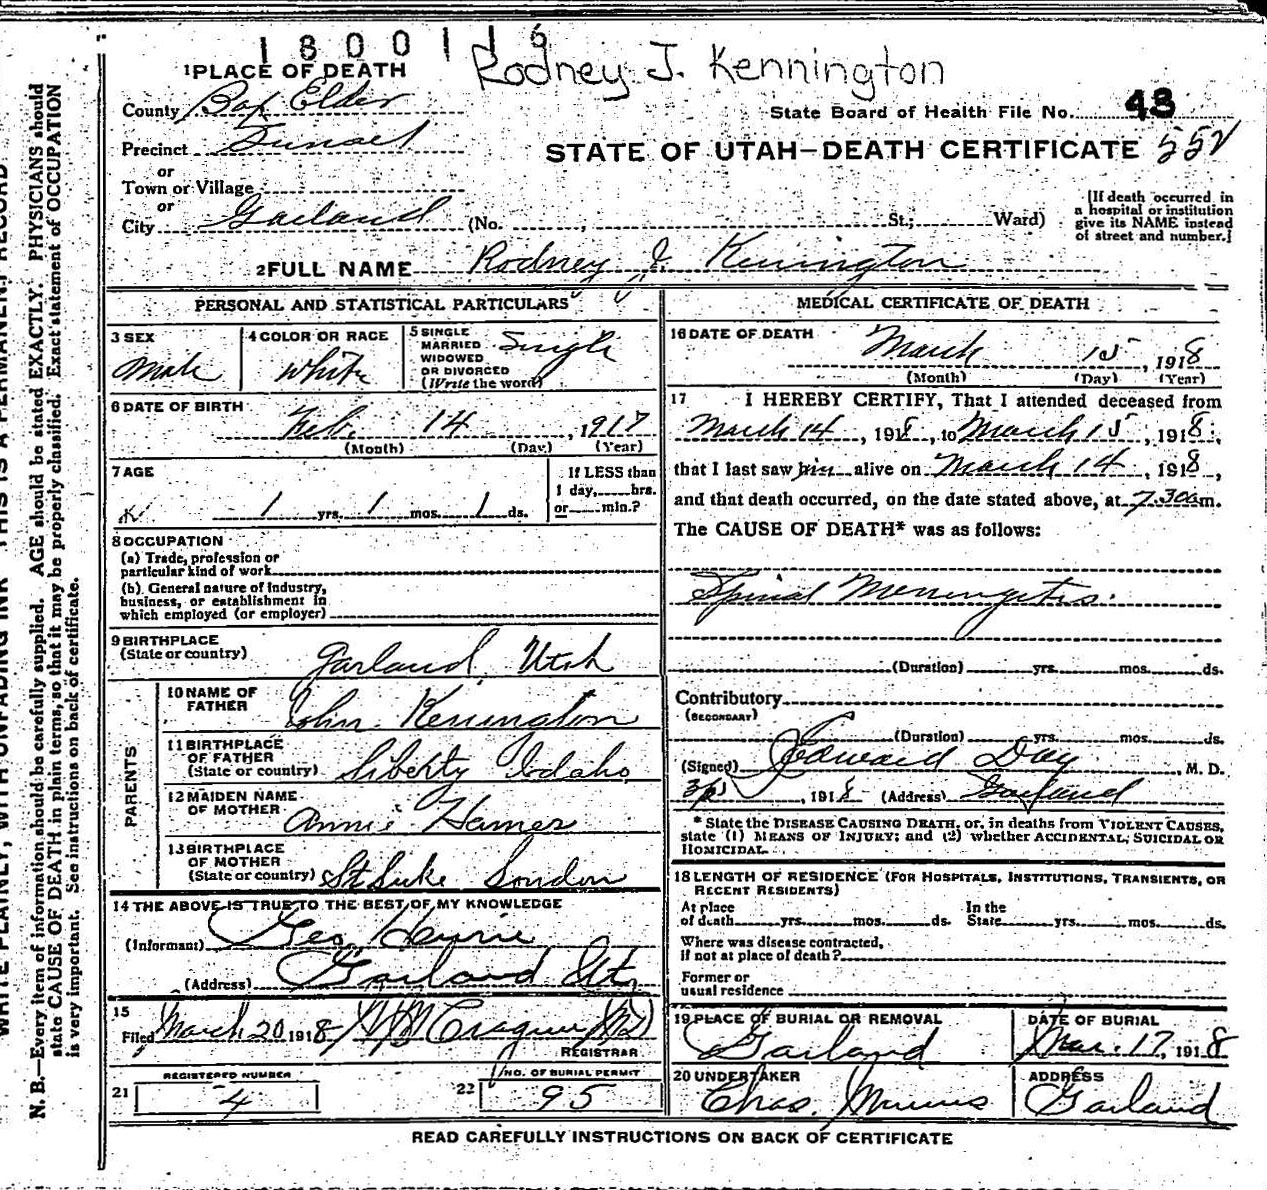 1800116
Rodney J. Kennington
1 PLACE OF DEATH
County Box Elder
State Board of Health File No. 48
Precinct Sunset
STATE OF UTAH—DEATH CERTIFICATE 552
or
Town or Village
or
City Garland (No. , St.; Ward)
[If death occurred in
a hospital or institution
give its NAME instead
of street and number.]
2 FULL NAME Rodney J. Kennington
PERSONAL AND STATISTICAL PARTICULARS
3 SEX
Male
4 COLOR OR RACE
White
5 SINGLE
MARRIED
WIDOWED
OR DIVORCED
(Write the word)
Single
6 DATE OF BIRTH
Feb. 14, 1917
(Month) (Day) (Year)
7 AGE
1 yrs. 1 mos. 1 ds.
If LESS than
1 day, hrs.
or min.?
8 OCCUPATION
(a) Trade, profession or
particular kind of work
(b) General nature of industry,
business, or establishment in
which employed (or employer)
9 BIRTHPLACE
(State or country) Garland, Utah
PARENTS
10 NAME OF
FATHER John Kennington
11 BIRTHPLACE
OF FATHER
(State or country) Liberty Idaho
12 MAIDEN NAME
OF MOTHER Annie Hamer
13 BIRTHPLACE
OF MOTHER
(State or country) St Luke London
14 THE ABOVE IS TRUE TO THE BEST OF MY KNOWLEDGE
(Informant) Geo
(Address) Garland Ut.
15
Filed March 20 1918
REGISTRAR
REGISTERED NUMBER
21 4
NO. OF BURIAL PERMIT
22 95
MEDICAL CERTIFICATE OF DEATH
16 DATE OF DEATH
March 15, 1918
(Month) (Day) (Year)
17 I HEREBY CERTIFY, That I attended deceased from
March 14, 1918, to March 15, 1918,
that I last saw him alive on March 14, 1918,
and that death occurred, on the date stated above, at 7.30 a m.
The CAUSE OF DEATH* was as follows:
Spinal Meningetis.
(Duration) yrs. mos. ds.
Contributory
(SECONDARY)
(Duration) yrs. mos. ds.
(Signed) Edward Day, M. D.
, 1918 (Address) Garland
* State the DISEASE CAUSING DEATH, or, in deaths from VIOLENT CAUSES,
state (1) MEANS OF INJURY; and (2) whether ACCIDENTAL, SUICIDAL OR
HOMICIDAL.
18 LENGTH OF RESIDENCE (FOR HOSPITALS, INSTITUTIONS, TRANSIENTS, OR
RECENT RESIDENTS)
At place
of death yrs. mos. ds.
In the
State yrs. mos. ds.
Where was disease contracted,
if not at place of death?
Former or
usual residence
19 PLACE OF BURIAL OR REMOVAL
Garland
DATE OF BURIAL
Mar. 17, 1918
20 UNDERTAKER
Chas.
ADDRESS
Garland
READ CAREFULLY INSTRUCTIONS ON BACK OF CERTIFICATE
WRITE PLAINLY, WITH UNFADING INK—THIS IS A PERMANENT RECORD
N. B.—Every item of information should be carefully supplied. AGE should be stated EXACTLY. PHYSICIANS should
state CAUSE OF DEATH in plain terms, so that it may be properly classified. Exact statement of OCCUPATION
is very important. See instructions on back of certificate.